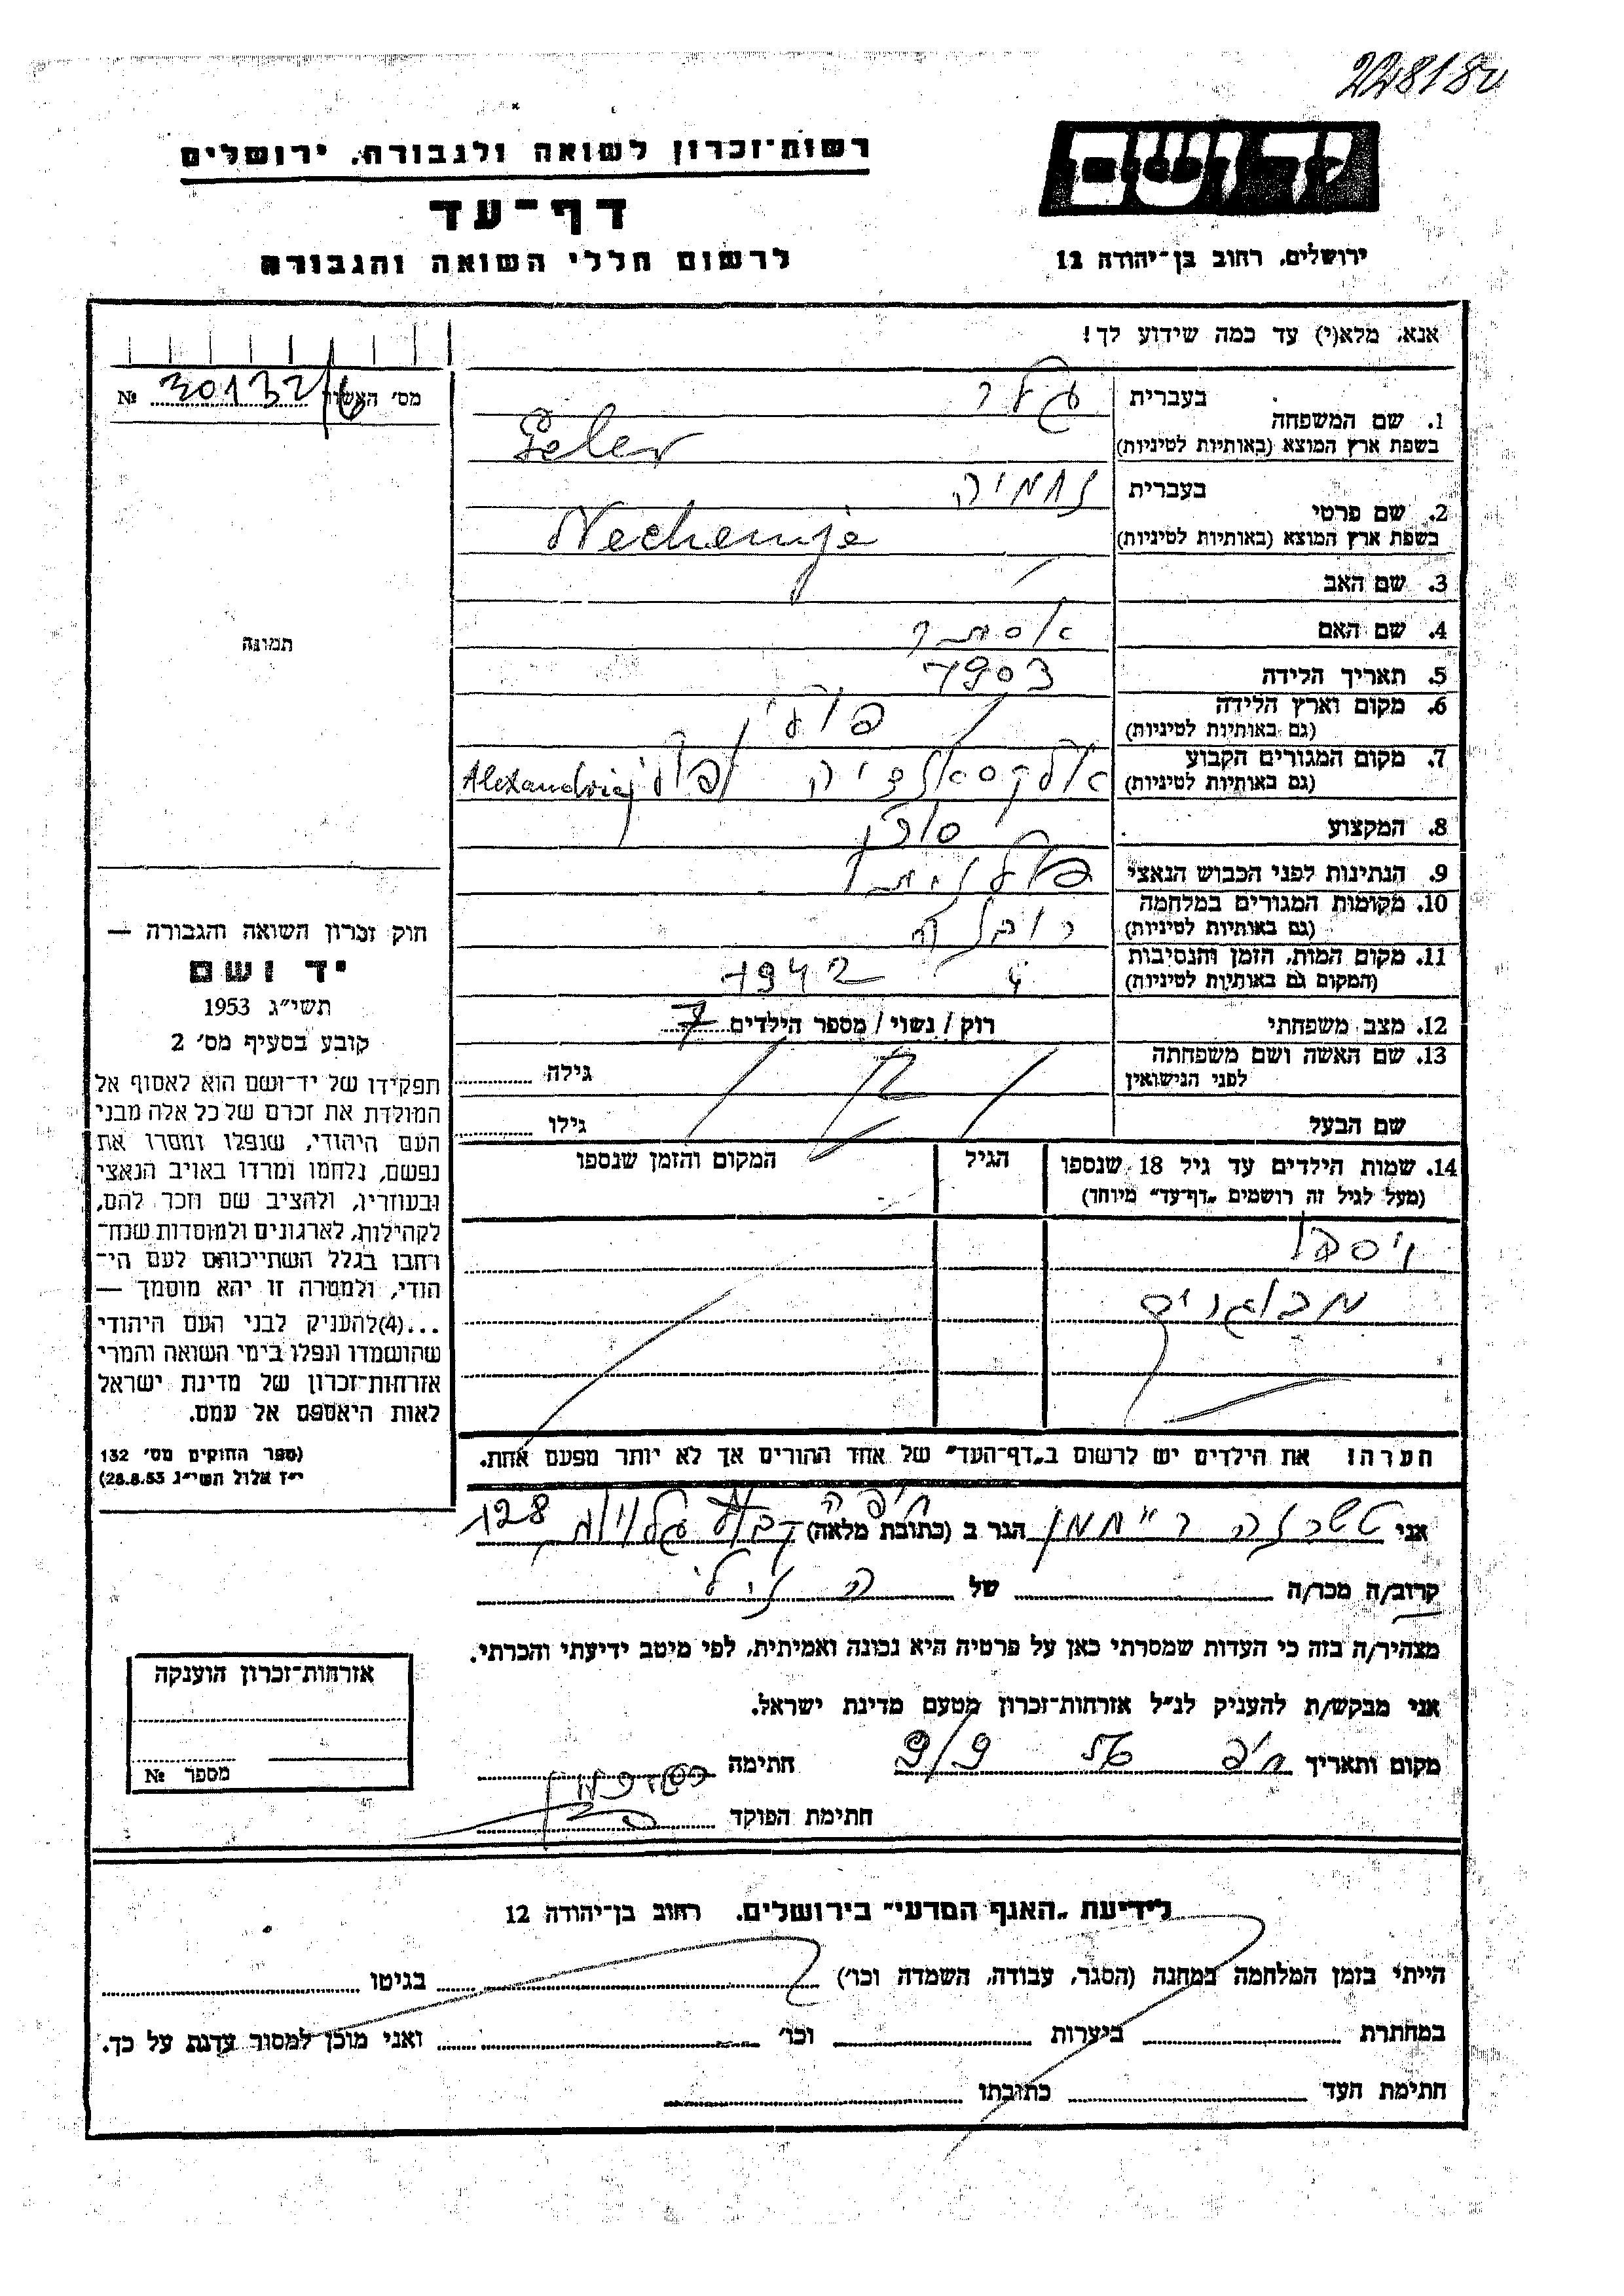 228180
רשות־זכרון לשואה ולגבורה, ירושלים
יד ושם
דף־עד
לרשום חללי השואה והגבורה
ירושלים, רחוב בן־יהודה 12
אנא, מלא(י) עד כמה שידוע לך!
מס׳ האשור 30132/6 №
1. שם המשפחה
בעברית גלר
בשפת ארץ המוצא (באותיות לטיניות) Geler
2. שם פרטי
בעברית נחמיה
בשפת ארץ המוצא (באותיות לטיניות) Nechemje
3. שם האב
4. שם האם אסתר
5. תאריך הלידה 1903
6. מקום וארץ הלידה פולין
(גם באותיות לטיניות)
7. מקום המגורים הקבוע אלקסאנדריה פולין
(גם באותיות לטיניות) Alexandrja
8. המקצוע סוכן
9. הנתינות לפני הכבוש הנאצי פולנית
10. מקומות המגורים במלחמה רובנה
(גם באותיות לטיניות)
11. מקום המות, הזמן והנסיבות 4 1942
(המקום גם באותיות לטיניות)
12. מצב משפחתי רוק / נשוי / מספר הילדים 7
13. שם האשה ושם משפחתה גילה
לפני הנישואין
שם הבעל גילו
14. שמות הילדים עד גיל 18 שנספו הגיל המקום והזמן שנספו
(מעל לגיל זה רושמים „דף־עד״ מיוחד)
ניספו
מבוגרים
הערה! את הילדים יש לרשום ב„דף־העד״ של אחד ההורים אך לא יותר מפעם אחת.
תמונה
חוק זכרון השואה והגבורה —
יד ושם
תשי״ג 1953
קובע בסעיף מס׳ 2
תפקידו של יד־ושם הוא לאסוף אל
המולדת את זכרם של כל אלה מבני
העם היהודי, שנפלו ומסרו את
נפשם, נלחמו ומרדו באויב הנאצי
ובעוזריו, ולהציב שם וזכר להם,
לקהילות, לארגונים ולמוסדות שנח־
רחבו בגלל השתייכותם לעם הי־
הודי, ולמטרה זו יהא מוסמך —
...(4)להעניק לבני העם היהודי
שהושמדו ונפלו בימי השואה והמרי
אזרחות־זכרון של מדינת ישראל
לאות היאספם אל עמם.
(ספר החוקים מס׳ 132
י״ז אלול תשי״ג 28.8.53)
אני רייחמן הגר ב (כתובת מלאה) חיפה קבוץ גלויות 128
קרוב/ה מכר/ה של ה
מצהיר/ה בזה כי העדות שמסרתי כאן על פרטיה היא נכונה ואמיתית, לפי מיטב ידיעתי והכרתי.
אני מבקש/ת להעניק לנ״ל אזרחות־זכרון מטעם מדינת ישראל.
מקום ותאריך חיפ 9/9 חתימה
חתימת הפוקד
אזרחות־זכרון הוענקה
מספר №
לידיעת „האגף המדעי״ בירושלים. רחוב בן־יהודה 12
הייתי בזמן המלחמה במחנה (הסגר, עבודה, השמדה וכו׳) בגיטו
במחתרת ביערות וכו׳ ואני מוכן למסור עדות על כך.
חתימת העד כתובתו